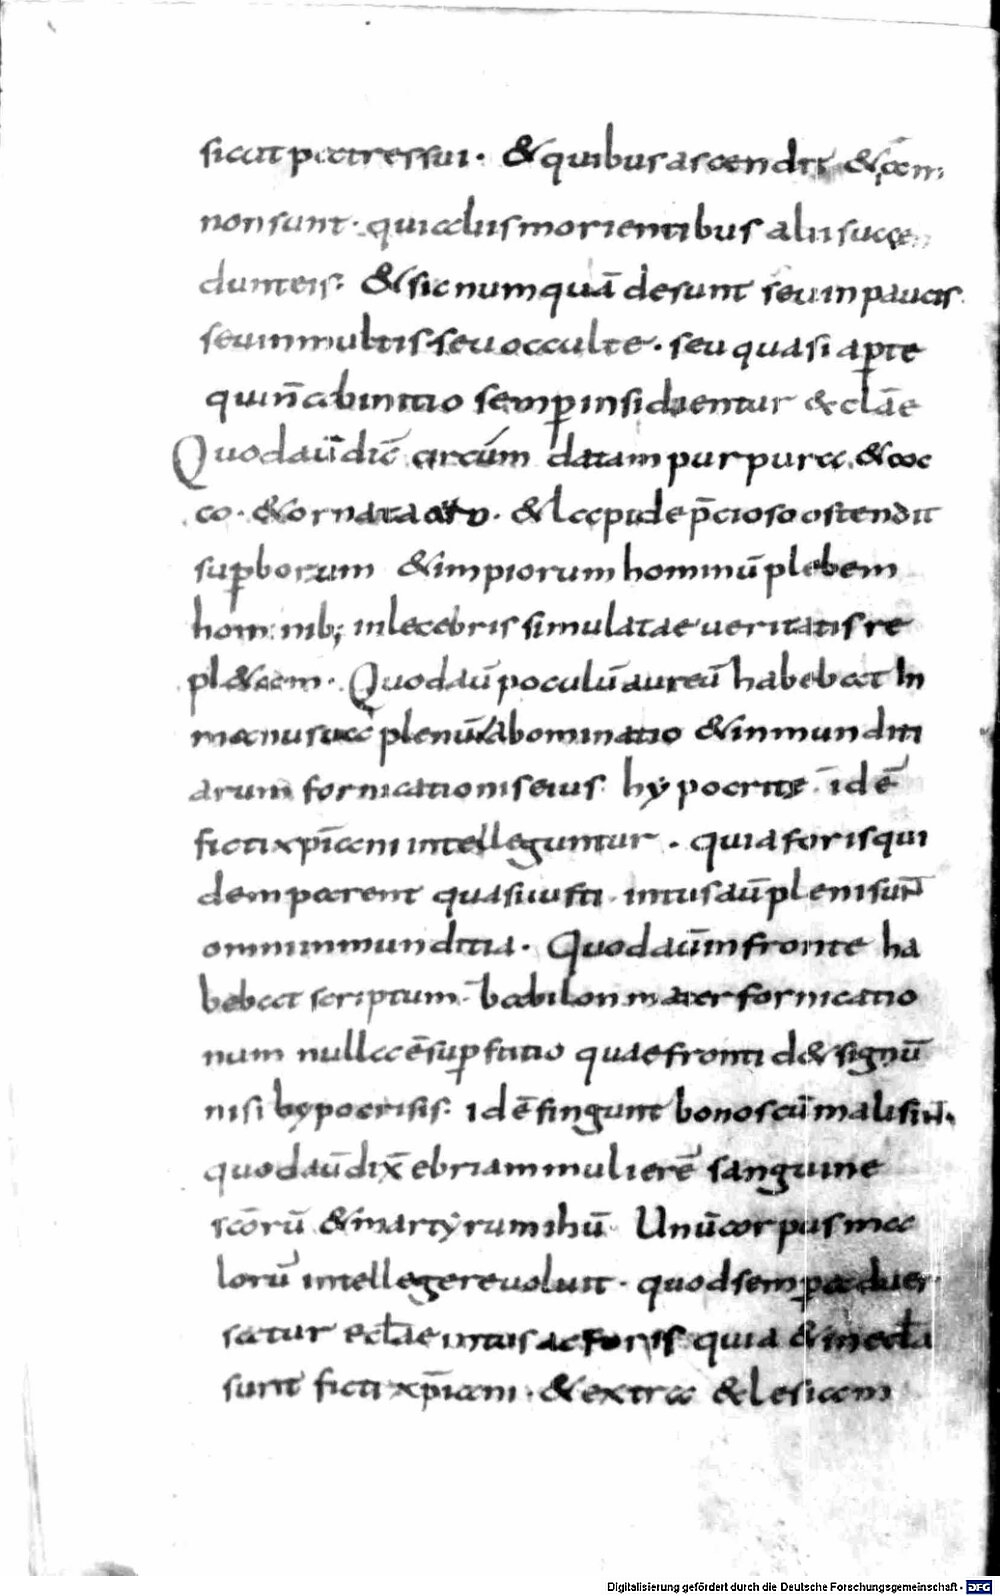 sicut patressui · & quibus ascendit & iā m
non sunt · quia aliis morientibus alii succe
dunt eis : & sic numquā desunt seu in paucis
seu in multis · seu occulte · seu quasi aperte
qui n̄ ab initio semp insidientur & clāe
Quod aū dic̄ circum datam purpura & coc
co · & ornata auro · & lapide p̄cioso ostendit
supborum & impiorum hominū plebem
hominib; inlecebris simulatae ueritatis re
pl&am · Quod aū poculū aureū habebat In
manu sua plenū abominatio & inmunditi
arum fornicationis eius : hypocritę · id ē
ficti xp̄iani intelleguntur · quia foris qui
dem parent quasi iusti · intus aū pleni sun̄
omni inmunditia · Quod aū in fronte ha
bebat scriptum · babilon mater fornicatio
num nulla ē supstitio quae fronti d& signū
nisi hypocrisis : id ē fingunt bonos cū mali sin̄t
quod aū dix̄ ebriam mulierē sanguine
scōrū & martyrum ihū · Unū corpus ma
lorū intellegere uoluit · quod semp aduer
satur eclae intus ac foris quia & in ecla
sunt ficti xp̄iani · & extra & lesiam